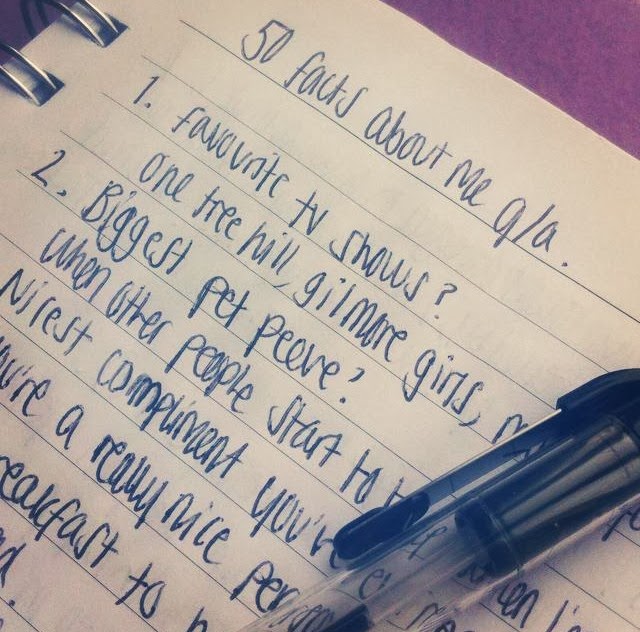 50 facts about me q/a.
1. favourite tv shows?
one tree hill, gilmore girls,
2. Biggest pet peeve?
when other people start to
Nicest compliment you've
you're a really nice
breakfast to